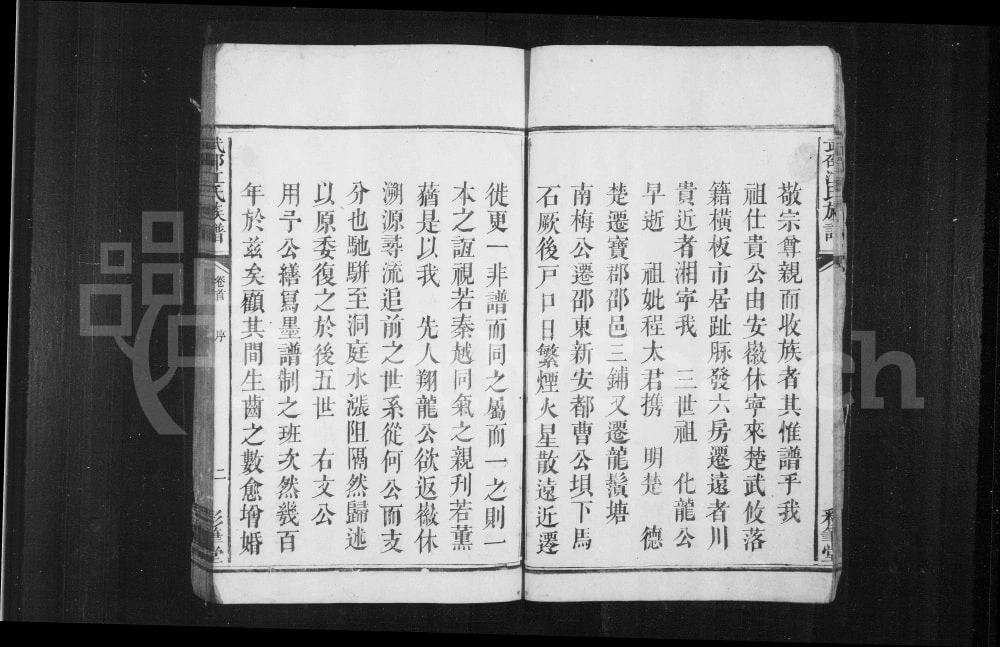 敬宗尊親而收族者其惟譜乎我
祖仕貴公由安徽休寧來楚武攸落
籍橫板市居趾脉發六房遷遠者川
貴近者湘寧我 三世祖 化龍公
早逝 祖妣程太君攜 明楚 德
楚遷寶郡邵邑三鋪又遷龍鬚塘
南梅公遷邵東新安都曹公垻下馬
石厥後戸口日繁煙火星散遠近遷
徙更一非譜而同之屬而一之則一
本之誼視若秦越同氣之親刋若薰
蕕是以我 先人翔龍公欲返徽休
溯源尋流追前之世系從何公而支
分也馳駢至洞庭水漲阻隔然歸述
以原委復之於後五世 右文公
用予公繕寫墨譜制之班次然幾百
年於兹矣顧其間生齒之數愈增婚
武邵江氏族譜
卷首
序
二
彩筆堂